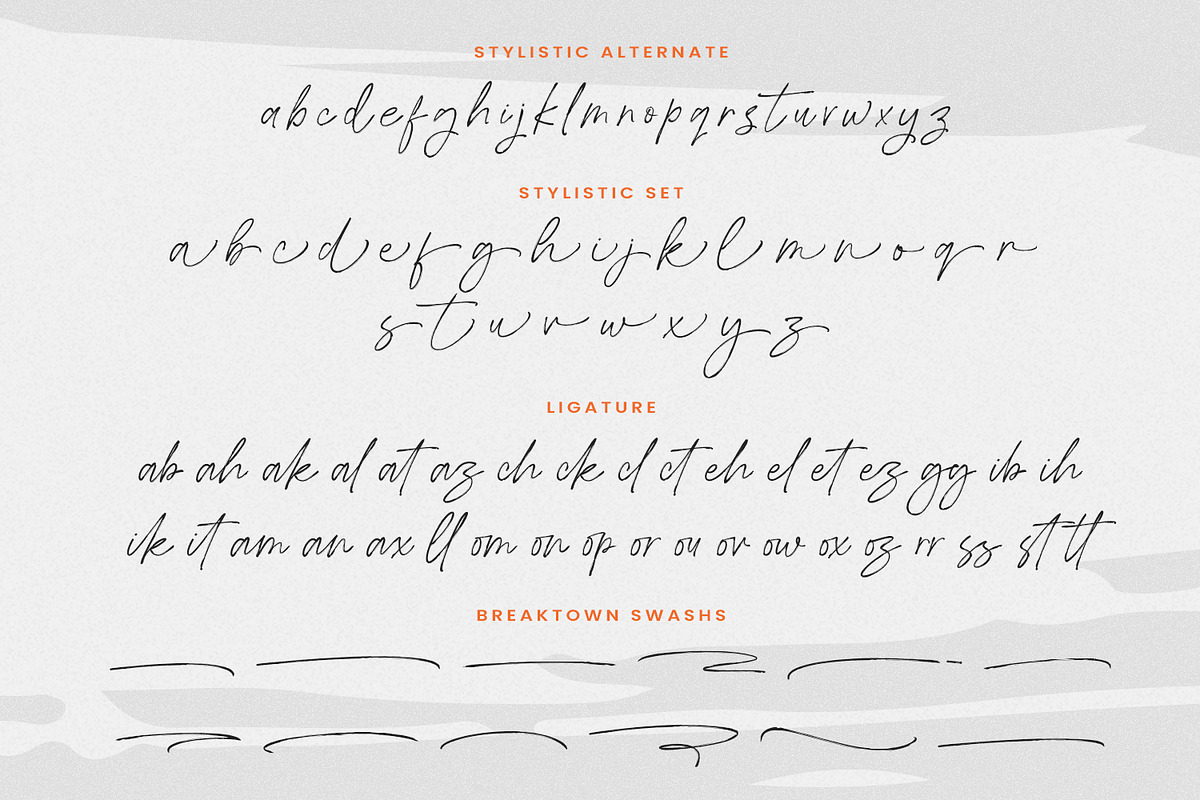 STYLISTIC ALTERNATE
abcdefghijklmnopqrsturwxyz
STYLISTIC SET
a b c d e f g h i j k l m n o q r
s t u r w x y z
LIGATURE
ab ah ak al at az ch ck cl ct eh el et ez gg ib ih
ik it am an ax ll om on op or ou ov ow ox oz rr ss st tt
BREAKTOWN SWASHS